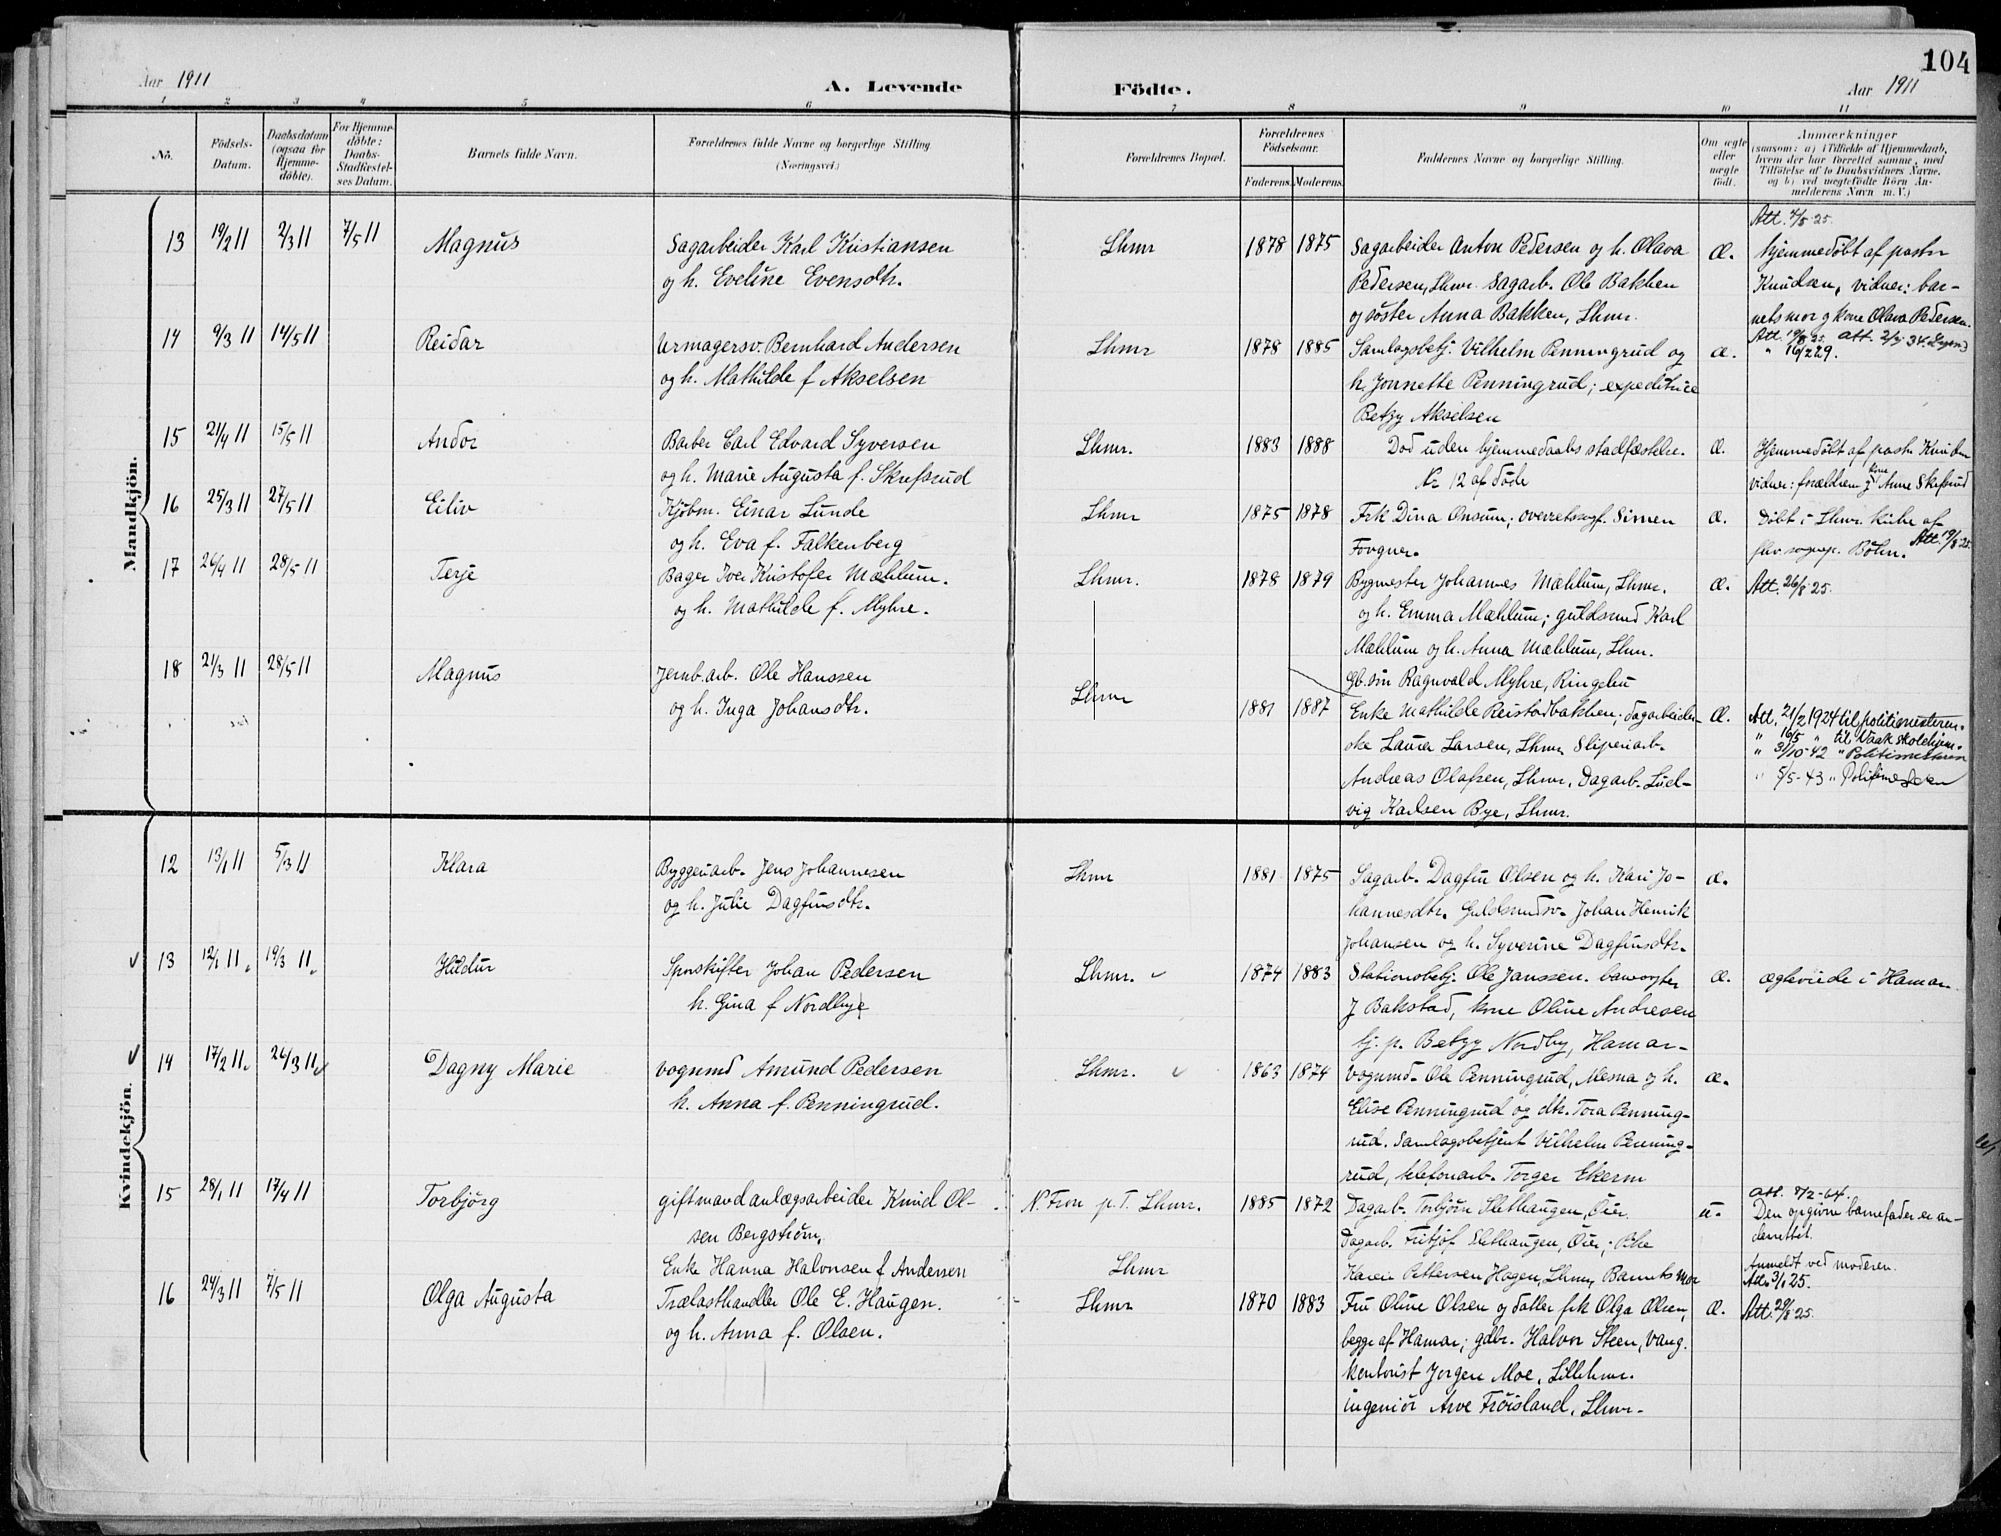 Aar 1911
A. Levende
Födte.
Aar 1911
104
1 2 3 4 5 6 7 8 9 10 11
No.
Födsels-Datum.
Daabsdatum (ogsaa for Hjemmedöbte).
For Hjemmedöbte: Daabs-Stadfæstelses Datum.
Barnets fulde Navn.
Forældrenes fulde Navne og borgerlige Stilling (Næringsvei.)
Forældrenes Bopæl.
Forældrenes Födselsaar.
Faderens. Moderens.
Faddernes Navne og borgerlige Stilling.
Om ægte eller uægte födt.
Anmærkninger
(saasom: a) i Tilfælde af Hjemmedaab, hvem der har forrettet samme, med Tilföielse af to Daabsvidners Navne, og b) ved uægtefödte Börn Anmelderens Navn m. V.)
Mandkjön.
13 19/2 11 2/3 11 7/5 11 Magnus
Sagarbeider Karl Kristiansen
og h. Eveline Evensdtr.
Lhmr 1878 1875
Sagarbeider Anton Pedersen og h. Olava
Pedersen, Lhmr. Sagarb. Ole Bakken
og søster Anna Bakken, Lhmr.
æ.
Att. 4/5 25.
Hjemmedøbt af pastor
Knudsen, vidner: bar-
nets mor og kone Olava Pedersen.
14 9/3 11 14/5 11 Reidar
Urmagersv. Bernhard Andersen
og h. Mathilde f Akselsen
Lhmr 1878 1885
Samlagsbetj. Vilhelm Penningrud og
h. Jonnette Penningrud; expeditrice
Betzy Akselsen
æ.
Att. 19/8 25. att. 2/3 34.
" 16/2 29.
15 21/4 11 15/5 11 Andor
Barber Carl Edvard Syversen
og h. Marie Augusta f. Skrefsrud
Lhmr. 1883 1888
Død uden hjemmedaabs stadfæstelse.
Nr 12 af døde
æ.
Hjemmedøbt af pastor Knudsen
vidner: forældrene og kone Anne Skrefsrud
16 25/3 11 27/5 11 Eiliv
Kjøbm. Einar Lunde
og h. Eva f. Falkenberg
Lhmr 1875 1878
Frk Dina Onsum; overretssagf. Simen
Fougner.
æ.
Døbt i Lhmr. kirke af
sognep. Böhn. Att. 19/8 25.
17 26/4 11 28/5 11 Terje
Bager Iver Kristofer Mæhlum.
og h. Mathilde f. Myhre.
Lhmr. 1878 1879
Bygmester Johannes Mæhlum, Lhmr.
og h. Emma Mæhlum; guldsmed Karl
Mæhlum og h. Anna Mæhlum, Lhmr.
Gb. søn Ragnvald Myhre, Ringebu
æ.
Att. 26/8 25.
18 21/3 11 28/5 11 Magnus
Jernb. arb. Ole Hanssen
og h. Inga Johansdtr.
Lhmr 1881 1887
Enke Mathilde Reistadbakken; dagarbeider-
ske Laura Larsen, Lhmr. Sliperiarb.
Andreas Olafsen, Lhmr. Dagarb. Lud-
vig Karlsen Bye, Lhmr.
æ.
Att. 21/2 1924 til politimesteren.
" 16/5 " til Vaak skolehjem.
" 31/10 42 " Politimesteren
" 5/5-43 " Politimesteren
Kvindekjön.
12 13/1 11 5/3 11 Klara
Byggeriarb. Jens Johannesen
og h. Julie Dagfinsdtr.
Lhmr 1881 1875
Sagarb. Dagfin Olsen og h. Kari Jo-
hannesdtr. Guldsmedsv. Johan Henrik
Johansen og h. Syverine Dagfinsdtr.
æ.
13 12/1 11 19/3 11 Hildur
Sporskifter Johan Pedersen
h. Gina f Nordbye
Lhmr. 1874 1883
Stationsbetj. Ole Janssen. banevogter
J Bakstad, kone Oline Andresen
tj. p. Betzy Nordby, Hamar-
æ.
ægteviede i Hamar
14 17/2 11 26/3 11 Dagny Marie
vognmd Amund Pedersen
h. Anna f. Penningrud.
Lhmr. 1863 1874
Vognmd. Ole Penningrud, Mesna og h.
Elise Penningrud og dtr. Tora Penning-
rud. Samlagsbetjent Vilhelm Penning-
rud, telefonarb. Torger Ekerm
æ.
15 28/1 11 17/4 11 Torbjørg
gift mand anlægsarbeider Knud Ol-
sen Bergstrøm.
Enke Hanna Halvorsen f Andersen
N. Fron p.T. Lhmr.
Lhmr
1885 1872
Dagarb. Torbjørn Slethaugen, Øier.
Dagarb. Fritjof Slethaugen, Øier;
Karen Pettersen Hagen, Lhmr, Barnets Mor
u.
att. 7/2-64.
Den opgivne barnefader er un-
derrettet.
Anmeldt ved moderen.
Att. 3/1 25.
16 24/3 11 7/5 11 Olga Augusta
Trælasthandler Ole E. Haugen.
og h. Anna f. Olsen.
Lhmr 1870 1883
Fru Oline Olsen og datter frk Olga Olsen,
begge af Hamar; gdbr. Halvor Steen, Vang.
Kontorist Jørgen Moe, Lillehmr.
ingeniør Arve Frøisland, Lhmr.
æ.
Att. 29/8 25.